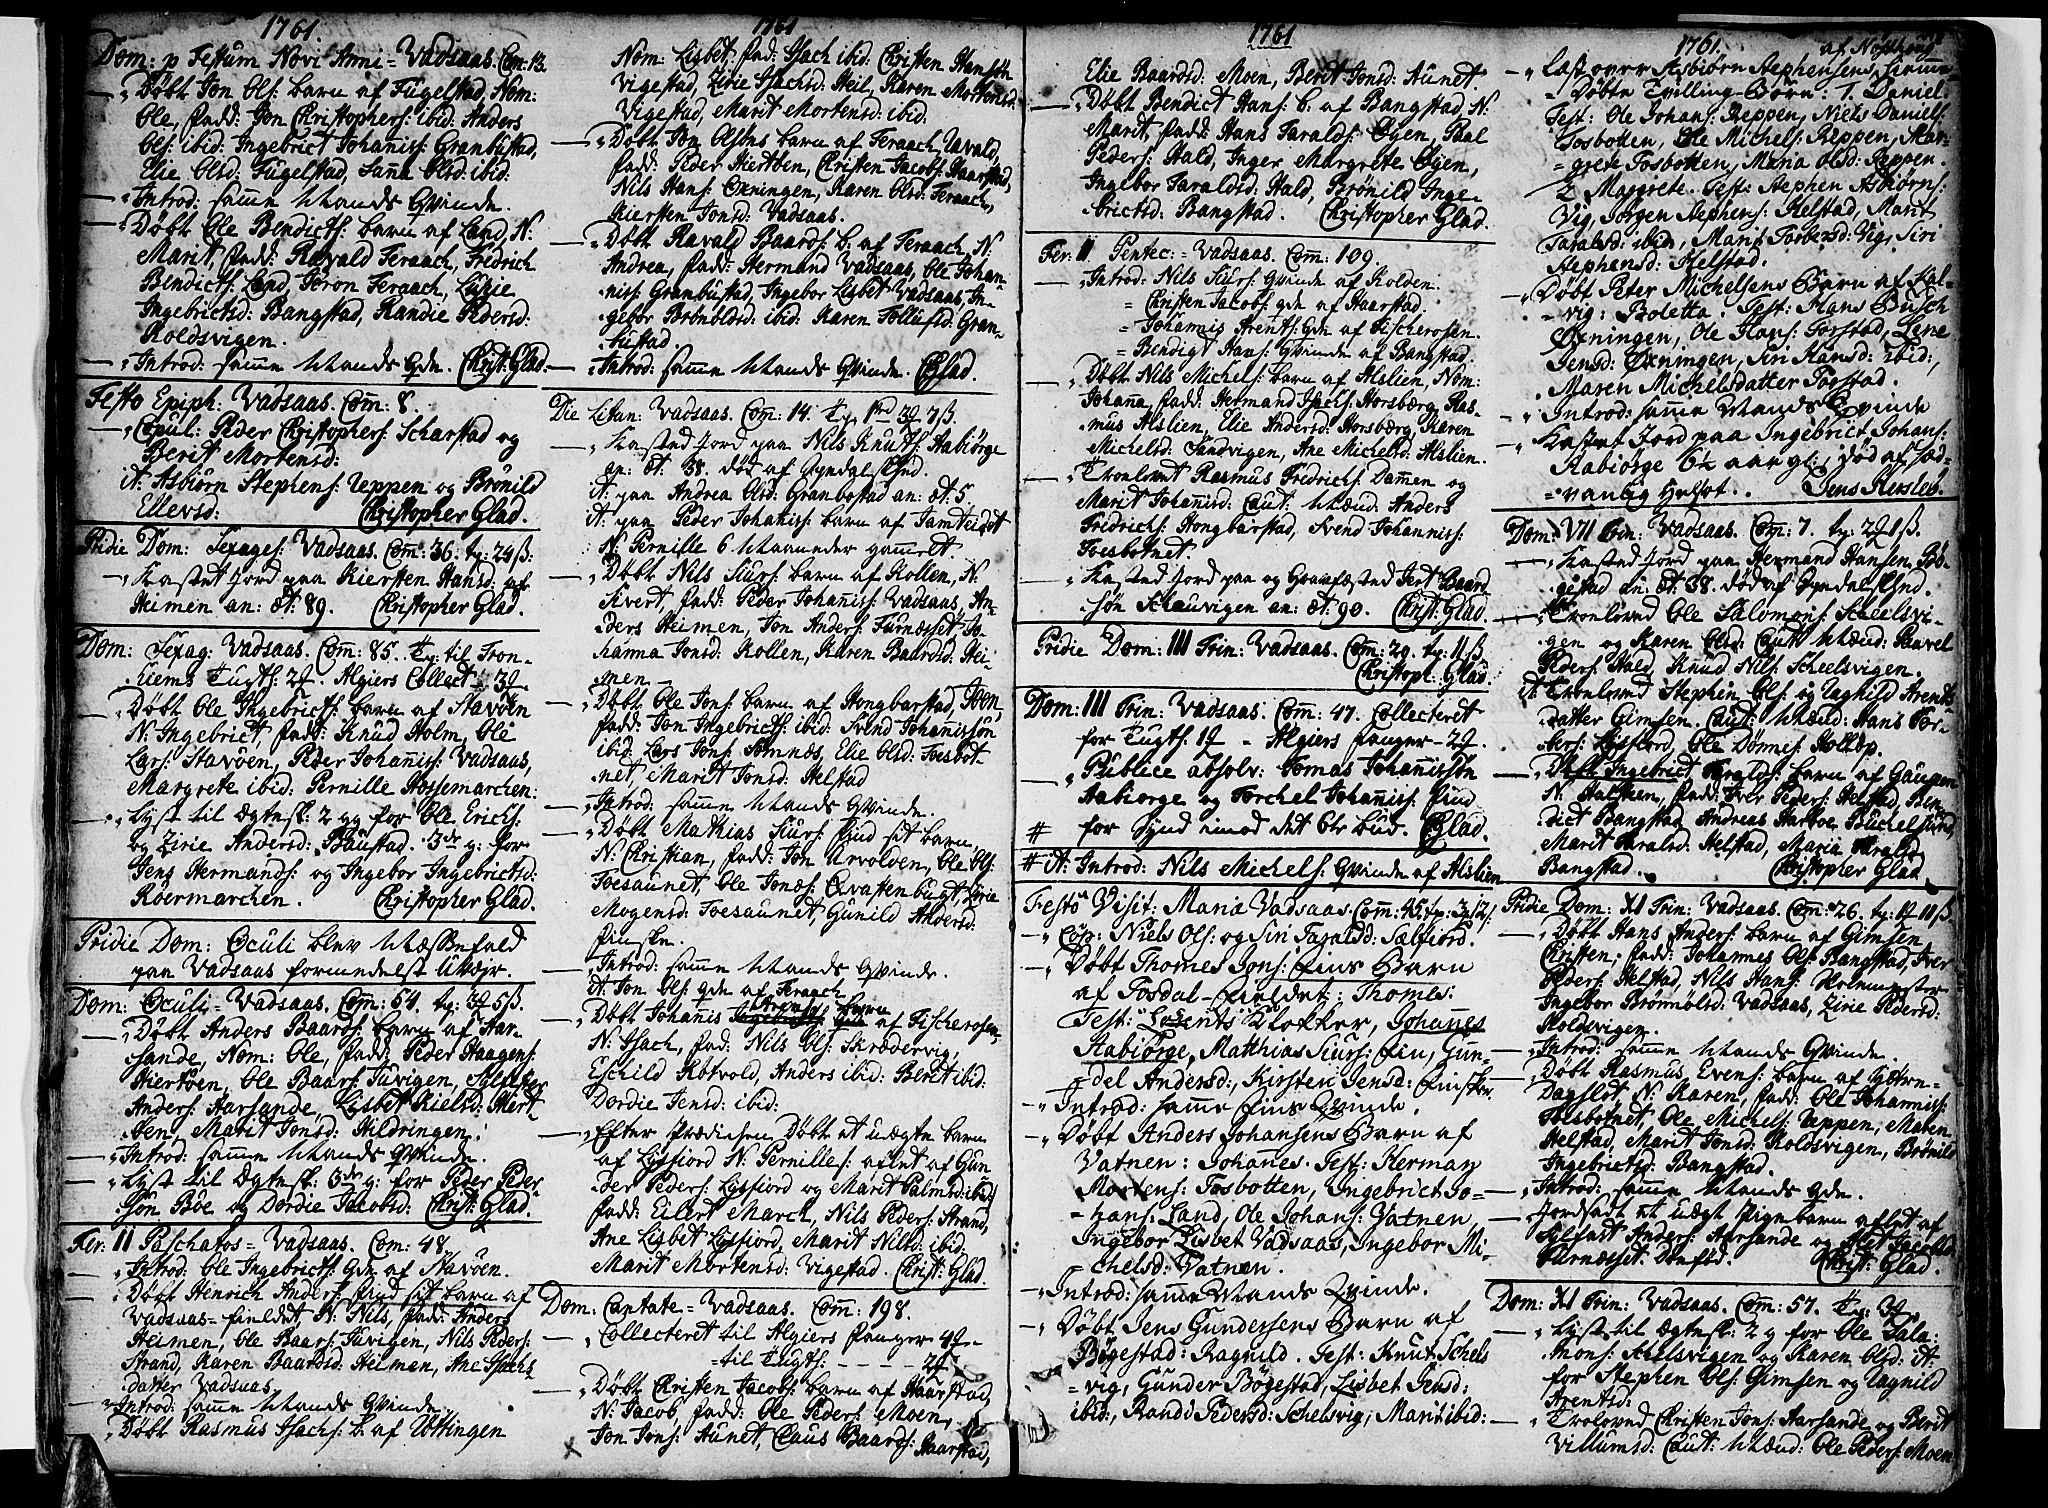 1761.
Dom: p Festum Novi Anni = Vadsaas. Com: 13.
Døbt Jon Ols: barn af Fugelstad, Nom:
Ole, fadd: Jon Christophers: ibid: Anders
Ols: ibid: Ingebrict Johaniss: Granbustad,
Elie Olsd: Fugelstad, Sana Olsd: ibid:
Introd: samme Mands Qvinde.
Døbt Ole Bendicts: barn af Land, N:
Marit, fadd: Ravald Feraach, Fredrich
Bendicts: Land, Joron Feraach, Lizie
Ingebrictsd: Bangstad, Randie Pedersd:
Koldsvigen.
Introd: samme Mands Qde. Christ: Glad.
Festo Epiph: Vadsaas. Com: 8.
Copul: Peder Christophers: Scharstad og
Berit Mortensd:
it: Asbiørn Stephens: Reppen og Brønild
Ellevsd: Christopher Glad.
Pridie Dom: Sexages: Vadsaas. Com: 36. tp: 24 ß:
Kastet Jord paa Kiersten Hansd: af
Heimen an: æt: 89. Christopher Glad.
Dom: Sexag: Vadsaas. Com: 85. Tp: til Tron-
hiems Tugts: 2. Algiers Collect 3.
Døbt Ole Ingebricts: barn af Stavøen
N: Ingebrict, fadd: Knud Holm, Ole
Lars: Stavøen, Peder Johaniss: Vadsaas,
Margrete ibid: Pernille Hossemarchen:
Lyst til Ægtesk: 2 gg for Ole Erichs:
og Zirie Andersd: Baustad. 3de g: for
Jens Hermands: og Ingebor Ingebrictsd:
Røermarchen. Christopher Glad.
Pridie Dom: Oculi blev Messefald
paa Vadsaas formedelst Uvejr.
Dom: Oculi = Vadsaas. Com: 54. tp: 3 5 ß.
Døbt Anders Baards: barn af Aar-
sande, Nom: Ole, fadd: Peder Haagens:
Hiertøen, Ole Baars: Tuvigen, Salfester
Anders: Aarsande, Lisbet Nielsd: Hert-
øen, Marit Jonsd: Hildringen.
Introd: samme Mands Qvinde.
Lyst til Ægtesk: 3de g: for Peder Peder-
søn Bøe og Dordie Jacobsd: Christ: Glad.
Fer: II Paschatos = Vadsaas. Com: 48.
Introd: Ole Ingebricts: Qde af Stavøen.
Døbt Henrich Anders: find sit barn af
Vadsaas-fieldet, N: Nils, fadd: Anders
Heimen, Ole Baars: Tuvigen, Nils Peders:
Strand, Karen Baardsd: Heimen, Ane Isachs
datter Vadsaas.
Introd: samme Mands Qvinde.
Døbt Rasmus Isachs: b. af Uttingen
1761
Nom: Lisbet, fad: Isach ibid: Christen Hansøn
Vigestad, Zirie Isachsd: Heil, Karen Mortensd:
Vigestad, Marit Mortensd: ibid:
Døbt Jon Olsøns barn af Feraach, Ravald,
fadd: Peder Hiertøen, Christen Jacobs: Haarstad,
Nils Hans: Oxningen, Karen Olsd: Feraach,
Kiersten Jonsd: Vadsaas.
Døbt Ravald Baards: b. af Feraach, N:
Andrea, fadd: Hermand Vadsaas, Ole Johan-
niss: Granbustad, Ingebor Lisbet Vadsaas, In-
gebor Brønildsd: ibid: Karen Tollufsd: Gran-
bustad.
Introd: samme Mands Qvinde. CGlad.
Die Litan: Vadsaas. Com: 14. Tp: 3 7 ß.
Kasted Jord paa Nils Knuts: Aabiørge
an: æt: 38. død af
it: paa Andrea Olsd: Granbostad an: æt: 5.
it: paa Peder Johaniss: barn af Jamteidet
N: Pernille 6 Maaneder gammelt
Døbt Nils Siurs: barn af Kollen, N:
Sivert, fadd: Peder Johaniss: Vadsaas, An-
ders Heimen, Jon Anders: Furnesset, Jo-
hanna Jonsd: Kollen, Karen Baardsd: Hei-
men
Døbt Ole Jons: barn af Hongbarstad, Joen,
fadd: Jon Ingebricts: ibid: Svend Johanissøn
ibid: Lars Jons: Somnæs, Elie Olsd: Fosbot-
net, Marit Jonsd: Helstad
Introd: samme Mands Qvinde.
Døbt Mathias Siurs: find sit barn,
N: Christian, fadd: Jon Urvolden, Ole Ols:
Toesaunet, Ole Jonæs: Qvastenbugt, Zirie
Mogensd: Toesaunet, Gunild Andersd:
finske.
Introd: samme Mands Qvinde.
it: Jon Ols: qde af Feraach
Døbt Johanis Arents barn af Fischerosen,
N: Isach, fad: Nils Ols: Skrødervig,
Eschild Røtvold, Anders ibid: Berit ibid:
Dordie Jensd: ibid:
Efter Prædichen Døbt et uægte barn
af Lysfiord N: Pernilles: aflet af Gun-
der Peders: Lysfiord og Marit Palmsd: ibid:
fadd: Eilert March, Nils Peders: Strand,
Ane Lisbet Lysfiord, Marit Nilsd: ibid:
Marit Mortensd: Vigestad. Christ: Glad.
Dom: Cantate = Vadsaas. Com: 198.
Collecteret til Algiers fanger 4
til Tugts: - - - 2
Døbt Christen Jacobs: barn af Haarstad,
N: Jacob, fadd: Ole Peders: Moen,
Jon Jons: Aunet, Claus Baards: Haarstad,
1761
Elie Baardsd: Moen, Berit Jonsd: Aunet.
Døbt Bendict Hans: b. af Bangstad, N:
Marit, fadd: Hans Taralds: Øyen, Paal
Peders: Hald, Inger Margrete Øyen,
Ingebor Taraldsd: Hald, Brønild Inge-
brictsd: Bangstad. Christopher Glad.
Fer: II Pentec: = Vadsaas. Com: 109.
Introd: Nils Siurs: Qvinde af Kolden.
= Christen Jacobs: qde af Haarstad.
= Johannis Arents: Qde af Fischerosen.
= Bendigt Hans: Qvinde af Bangstad.
Døbt Nils Michels: barn af Alslien, Nom:
Johana, fadd: Hermand Isachs: Horsberg, Ras-
mus Alslien, Elie Andersd: Horsberg, Karen
Michelsd: Sandvigen, Ane Michelsd: Alslien.
Tronlovet Rasmus Fredrichs: Dammen og
Marit Johanisd: Caut: Mænd: Anders
Fridrichs: Hongbarstad, Svend Johanniss:
Toesbotnet.
Kasted Jord paa og Gravfæsted Jert Baard
søn Schauvigen an: æt: 90. Christ: Glad.
Pridie Dom: III Trin: Vadsaas. Com: 29. tp: 11 ß
Christoph: Glad.
Dom: III Trin: Vadsaas. Com: 47. Collecteret
for Tugts: 1 - Algiers fanger - 2.
Publice absolv: Tomas Johanissøn
Aabiørge og Torchel Johaniss: find
# for Synd imod det 6te bud. CGlad.
# it: Introd: Nils Michels: Qvinde af Alslien
Festo Visit: Mariæ Vadsaas Com: 45. tp:
Cop: Niels Ols: og Siri Taraldsd: Sælfiord.
Døbt Thomes Jons: Fins Barn
af Tosdal-Fieldet: Thomes.
Test: Lorents Klokker, Johannes
Aabiørge, Matthias Siurs: Fin, Gun-
del Andersd:, Kirsten Jensd: Finsken.
Introd: samme Fins Qvinde.
Døbt Anders Johansens Barn af
Vatnen: Johanes. Test: Herman
Mortens: Tosbotten, Ingebrict Jo-
hans: Land, Ole Johans: Vatnen,
Ingebor Lisbet Vadsaas, Ingebor Mi-
chelsd: Vatnen.
Introd: samme Mands Qvinde.
Døbt Jens Gundersens Barn af
Bøgestad: Ragnild. Test: Knut Schels
vig, Gunder Bøgestad, Lisbet Jensd:
ibid:, Randi Pedersd: Schelsvig, Marit ibid:
1761.
Cast over Asbiørn Stephensens, hiemme-
Døbte Tvilling-Børn: 1. Daniel.
Test: Ole Johans: Reppen, Niels Daniels:
Tosbotten, Ole Michels: Reppen, Mar-
grete Tosbotten, Maria Olsd: Reppen.
2 Margrete. Test: Stephen Asbiørns:
Vig, Jørgen Stephens: Helstad, Marit
Taralsd: ibid, Marit Torbersd: Vig, Siri
Stephensd: Helstad.
Døbt Peter Michelsens Barn af Kal-
vig: Boletta. Test: Hans Busch
Øxningen, Ole Hans: Torstad, Lene
Jensd: Øxningen, Siri Hansd: ibid;
Maren Michelsdatter Torstad.
Introd: samme Mands Qvinde
Kastet Jord paa Ingebrict Johans:
Aabiørge 6½ aar gl:, død af sæd-
vanlig Hulsot. Jens
Dom: VII Trin: Vadsaas. Com: 7. tp: 2 1 ß.
Kasted Jord paa Hermand Hansen Bø-
gestad an: æt: 38. død af
Tronloved Ole Salomons: Scheelsvi-
gen og Karen Olsd: Caut: Mænd: Paavel
Peders: Hald, Knud Nils: Scheelsvigen.
it: Tronloved Stephen Ols: og Ragnild Arents-
datter Gimsen. Caut: Mænd: Hans Tor-
bers: Lysfiord, Ole Dønnes: Hollop.
Døbt Ingebrict Taralds: barn af Gaupen
N: Halsteen, fadd: Iver Peders: Helstad, Ben-
dict Bangstad, Andreas Harboe, Buchelsund,
Marit Taralsd: Helstad, Maria Taralsd:
Bangstad. Christopher Glad
Pridie Dom: XI Trin: Vadsaas. Com: 26. tp: 1 11 ß
Døbt Hans Anders: barn af Gimsen
Christen, fadd: Johannes Ols: Bangstad, Iver
Peders: Helstad, Nils Hans: Holmuster,
Ingebor Brønnolsd: Vadsaas, Zirie Pedersd:
Koldsvigen.
Introd: samme Mands Qvinde.
Døbt Rasmus Evens: barn af Ytteren-
Dagslot, N: Karen, fadd: Ole Johanniss:
Tosbotnet, Ole Michels: Reppen, Maren
Helstad, Marit Jonsd: Koldsvigen, Brønild
Ingebrictsd: Bangstad.
Introd: samme Mands Qde.
Jordsadt et uægt Pigebarn aflet af
Salfast Anders: Aarsande og Jacobsd:
Furnæsset. Christ: Glad.
Dom: XI Trin: Vadsaas. Com: 57. Tp: 3.
Lyst til Ægtesk: 2 g for Ole Sala:
mons: Schelsvigen og Karen Olsd: it:
for Stephen Ols: Gimsen og Ragnild
Arentsd:
Troloved Christen Jons: Aarsande og Berit
Villumsd: Caut: Mænd: Ole Peders: Moen